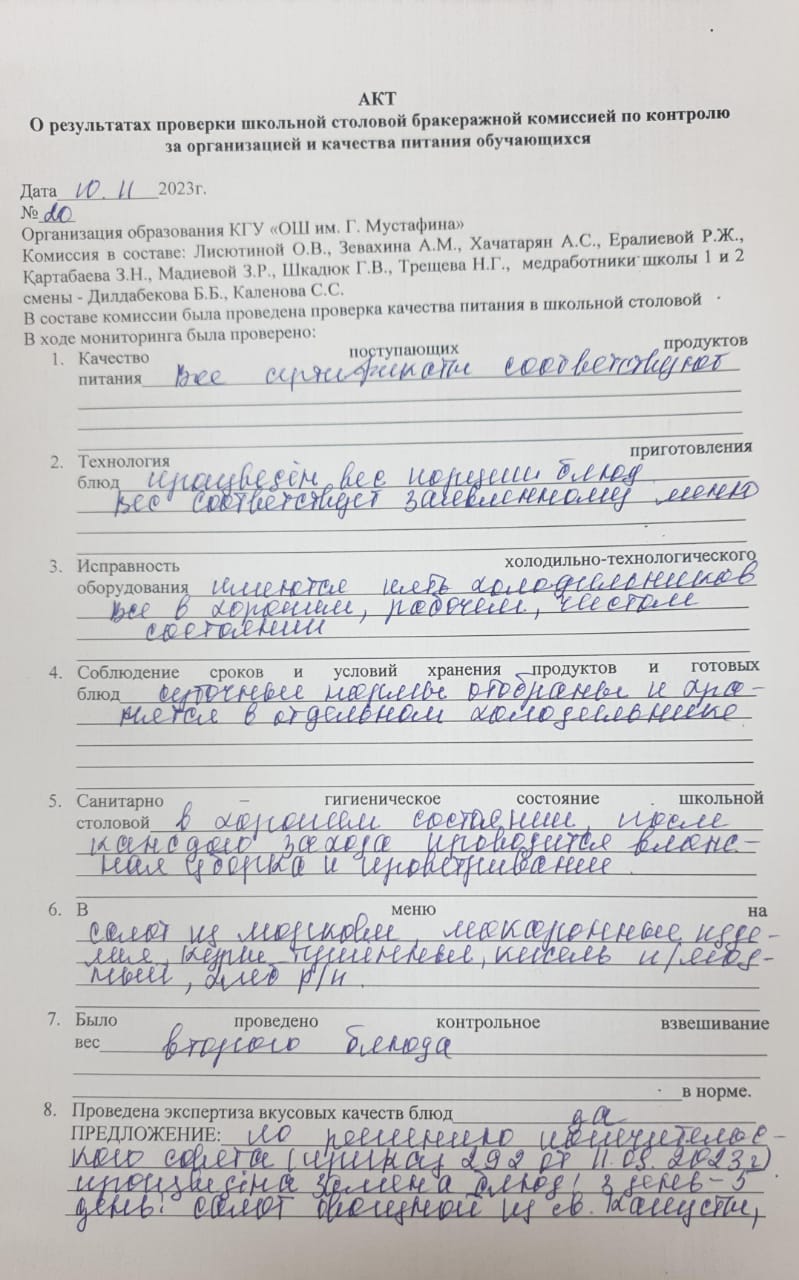 АКТ
О результатах проверки школьной столовой бракеражной комиссией по контролю
за организацией и качества питания обучающихся
Дата 10.11 2023г.
№ 20
Организация образования КГУ «ОШ им. Г. Мустафина»
Комиссия в составе: Лисютиной О.В., Зевахина А.М., Хачатарян А.С., Ералиевой Р.Ж.,
Картабаева З.Н., Мадиевой З.Р., Шкадюк Г.В., Трещева Н.Г., медработники школы 1 и 2
смены - Дилдабекова Б.Б., Каленова С.С.
В составе комиссии была проведена проверка качества питания в школьной столовой
В ходе мониторинга была проверено:
1. Качество поступающих продуктов
питания все сертификаты соответствуют
2. Технология приготовления
блюд произведён вес порции блюд
вес соответствует заявленному меню
3. Исправность холодильно-технологического
оборудования имеются пять холодильников
все в хорошем, рабочем, чистом
состоянии
4. Соблюдение сроков и условий хранения продуктов и готовых
блюд суточные нормы отобраны и хра-
нятся в отдельном холодильнике
5. Санитарно – гигиеническое состояние школьной
столовой в хорошем состоянии, после
каждого захода проводится влаж-
ная уборка и проветривание.
6. В меню на
салат из моркови, макаронные изде-
лия, куры тушенные, кисель п/ягод-
ный, хлеб р/п.
7. Было проведено контрольное взвешивание
вес второго блюда
в норме.
8. Проведена экспертиза вкусовых качеств блюд да
ПРЕДЛОЖЕНИЕ: по решению попечительс-
кого совета (приказ 292 от 11.09.2023г)
произведена замена блюд: 3 день - 5
день: салат овощной из св. капусты,